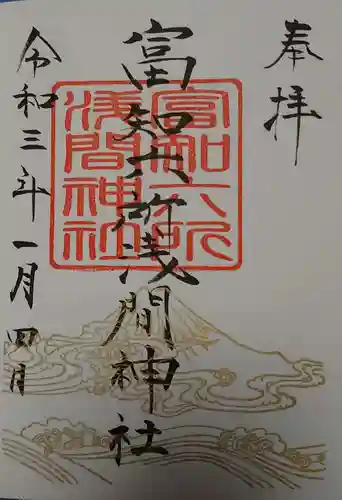 奉拝
富知六所浅間神社
富知六所
浅間神社
令和三年一月四月